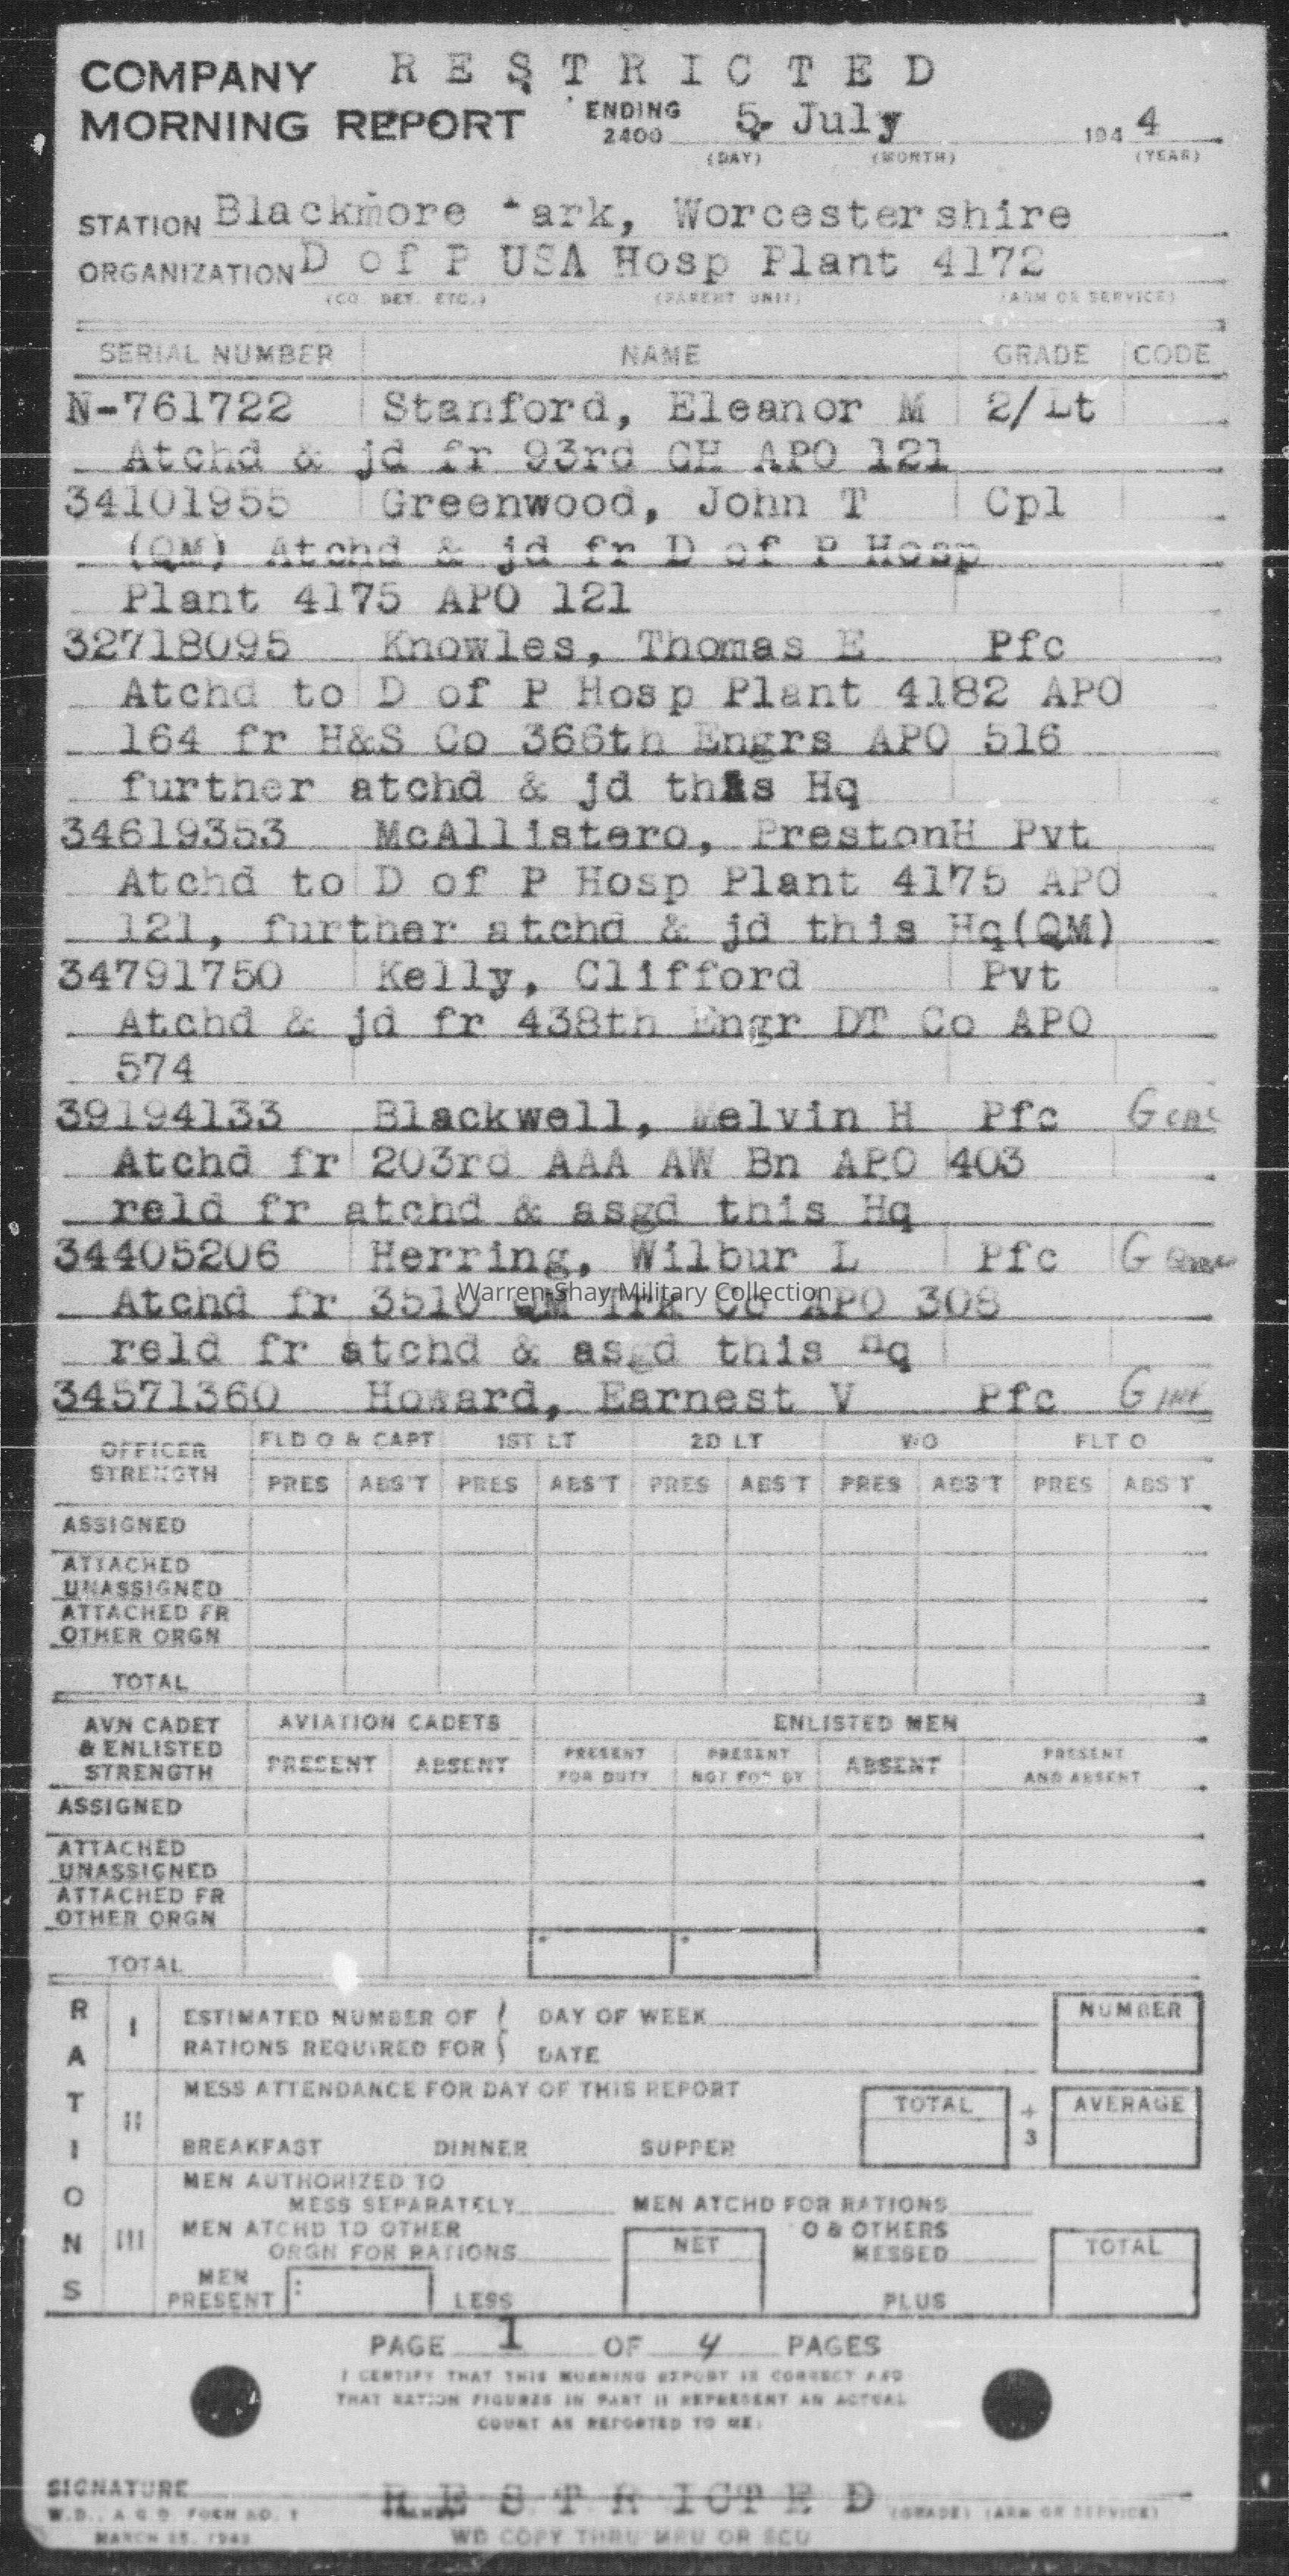 COMPANY R E S T R I C T E D
MORNING REPORT ENDING 2400 5 July 194 4
(DAY) (MONTH) (YEAR)
STATION Blackmore ark, Worcestershire
ORGANIZATION D of P USA Hosp Plant 4172
(CO. DET. ETC.) (PARENT UNIT) (ARM OR SERVICE)
SERIAL NUMBER NAME GRADE CODE
N-761722 Stanford, Eleanor M 2/Lt
Atchd & jd fr 93rd GH APO 121
34101955 Greenwood, John T Cpl
(QM) Atchd & jd fr D of P Hosp
Plant 4175 APO 121
32718095 Knowles, Thomas E Pfc
Atchd to D of P Hosp Plant 4182 APO
164 fr H&S Co 366th Engrs APO 516
further atchd & jd this Hq
34619353 McAllistero, PrestonH Pvt
Atchd to D of P Hosp Plant 4175 APO
121, further atchd & jd this Hq(QM)
34791750 Kelly, Clifford Pvt
Atchd & jd fr 438th Engr DT Co APO
574
39194133 Blackwell, Melvin H Pfc G
Atchd fr 203rd AAA AW Bn APO 403
reld fr atchd & asgd this Hq
34405206 Herring, Wilbur L Pfc G
Warren-Shay Military Collection
Atchd fr 3510 QM Trk Co APO 308
reld fr atchd & asgd this Hq
34571360 Howard, Earnest V Pfc G INF
OFFICER STRENGTH FLD O & CAPT 1ST LT 2D LT WO FLT O
PRES ABS'T PRES ABS'T PRES ABS'T PRES ABS'T PRES ABS'T
ASSIGNED
ATTACHED
UNASSIGNED
ATTACHED FR
OTHER ORGN
TOTAL
AVN CADET & ENLISTED STRENGTH AVIATION CADETS ENLISTED MEN
PRESENT ABSENT PRESENT FOR DUTY PRESENT NOT FOR DY ABSENT PRESENT AND ABSENT
ASSIGNED
ATTACHED
UNASSIGNED
ATTACHED FR
OTHER ORGN
TOTAL
RATIONS
I ESTIMATED NUMBER OF DAY OF WEEK NUMBER
RATIONS REQUIRED FOR DATE
II MESS ATTENDANCE FOR DAY OF THIS REPORT
TOTAL ÷ 3 AVERAGE
BREAKFAST DINNER SUPPER
III MEN AUTHORIZED TO
MESS SEPARATELY MEN ATCHD FOR RATIONS
MEN ATCHD TO OTHER
ORGN FOR RATIONS NET O & OTHERS MESSED TOTAL
MEN PRESENT LESS PLUS
PAGE 1 OF 4 PAGES
I CERTIFY THAT THIS MORNING REPORT IS CORRECT AND
THAT RATION FIGURES IN PART II REPRESENT AN ACTUAL
COUNT AS REPORTED TO ME:
SIGNATURE R E S T R I C T E D
W.D., A.G.O. FORM NO. 1 (NAME) (GRADE) (ARM OR SERVICE)
MARCH 25, 1943 WD COPY THRU MRU OR SCU